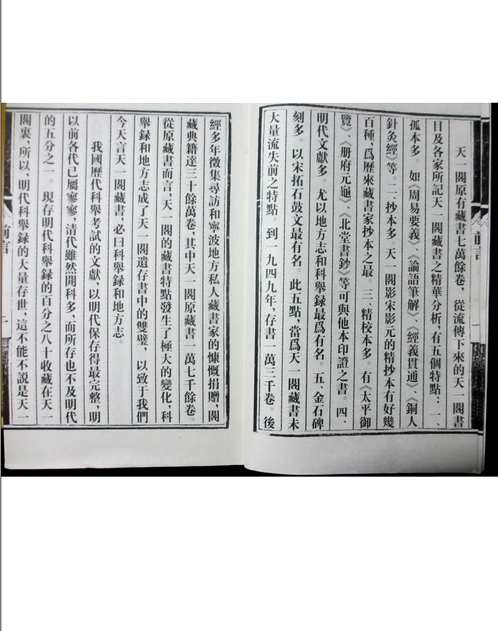 天一閣原有藏書七萬餘卷，從流傳下來的天一閣書
目及各家所記天一閣藏書之精華分析，有五個特點：一、
孤本多，如《周易要義》、《論語筆解》、《經義貫通》、《銅人
針灸經》等。二、抄本多，天一閣影宋影元的精抄本有好幾
百種，爲歷來藏書家抄本之最。三、精校本多，有《太平御
覽》、《册府元龜》、《北堂書鈔》等可與他本印證之書。四、
明代文獻多，尤以地方志和科舉録最爲有名。五、金石碑
刻多，以宋拓石鼓文最有名。此五點，當爲天一閣藏書未
大量流失前之特點。到一九四九年，存書一萬三千卷。後
經多年徵集尋訪和寧波地方私人藏書家的慷慨捐贈，閣
藏典籍達三十餘萬卷，其中天一閣原藏書一萬七千餘卷。
從原藏書而言，天一閣的藏書特點發生了極大的變化，科
舉録和地方志成了天一閣遺存書中的雙璧，以致于我們
今天言天一閣藏書，必曰科舉録和地方志。
我國歷代科舉考試的文獻，以明代保存得最完整，明
以前各代已屬寥寥，清代雖然開科多，而所存也不及明代
的五分之一。現存明代科舉録的百分之八十收藏在天一
閣裏，所以，明代科舉録的大量存世，這不能不說是天一
前言